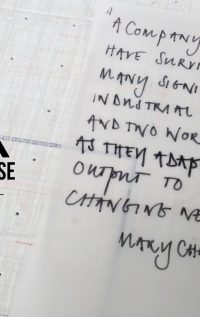 "A COMPANY
HAVE SURVI
MANY SIGNI
INDUSTRIAL
AND TWO WOR
AS THEY ADAP
OUTPUT TO
CHANGING NE
MARY CH
SE